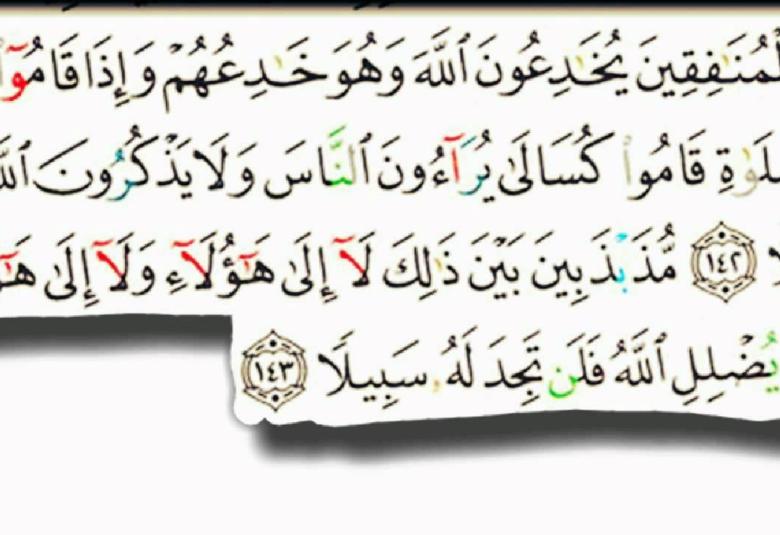 لْمُنَٰفِقِينَ يُخَٰدِعُونَ ٱللَّهَ وَهُوَ خَٰدِعُهُمْ وَإِذَا قَامُوٓا۟
لَوٰةِ قَامُوا۟ كُسَالَىٰ يُرَآءُونَ ٱلنَّاسَ وَلَا يَذْكُرُونَ ٱللَّ
لًا ١٤٢ مُّذَبْذَبِينَ بَيْنَ ذَٰلِكَ لَآ إِلَىٰ هَٰٓؤُلَآءِ وَلَآ إِلَىٰ هَٰٓؤُ
يُضْلِلِ ٱللَّهُ فَلَن تَجِدَ لَهُۥ سَبِيلًا ١٤٣